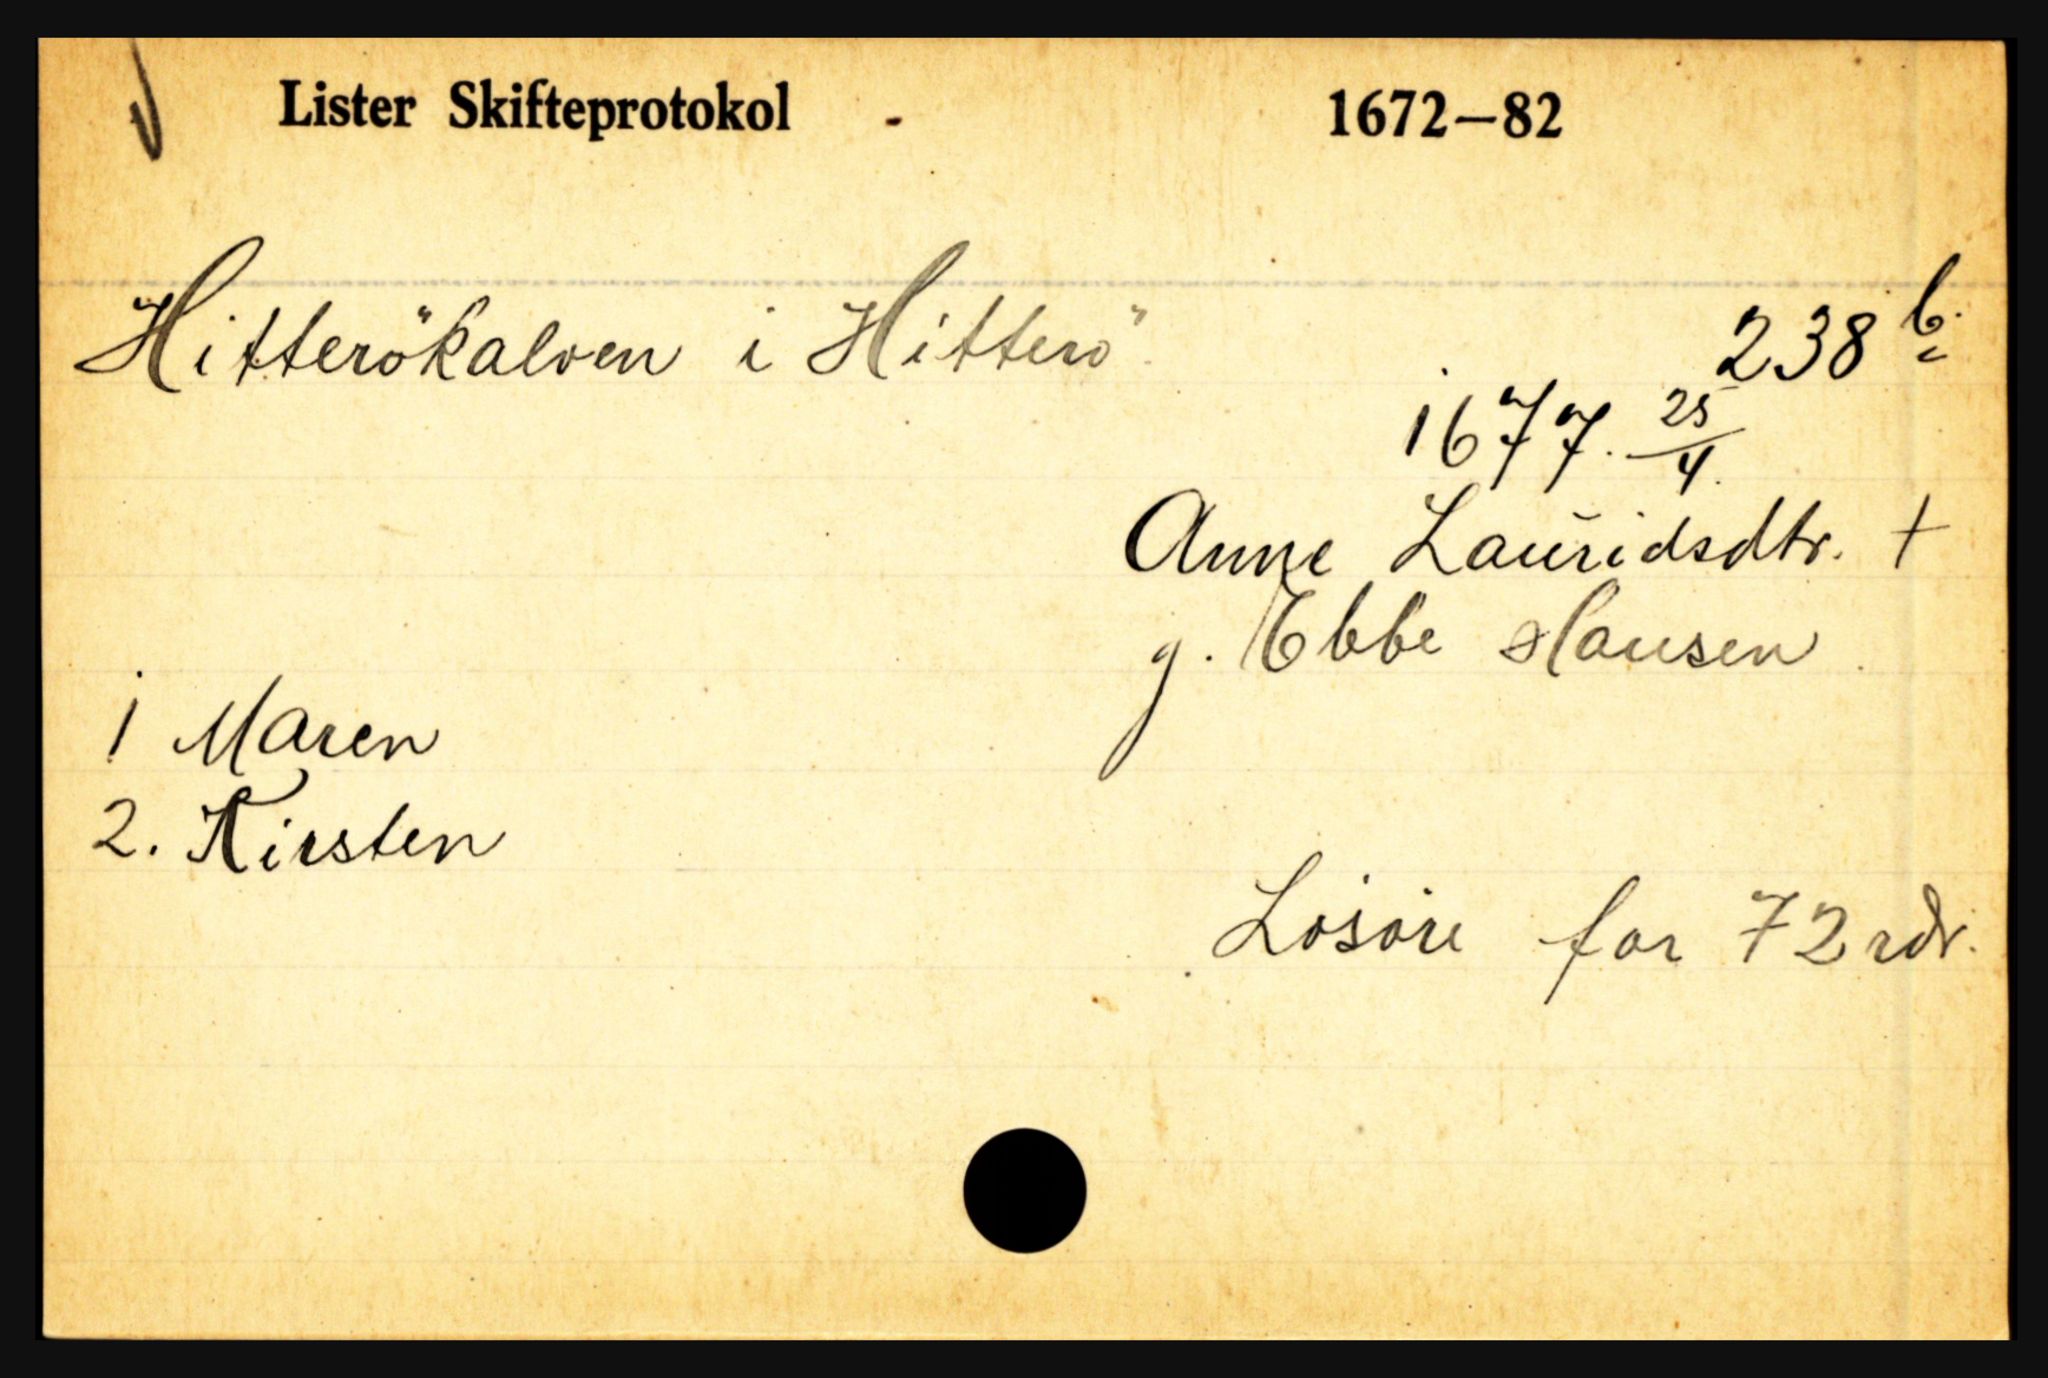 Lister Skifteprotokol 1672—82
Hitterökalven i Hitterö
238 b.
1677. 25/4.
Anne Lauridsdtr. +
g. Ebbe Hansen
1 Maren
2. Kirsten
Lösöre for 72 rdr.